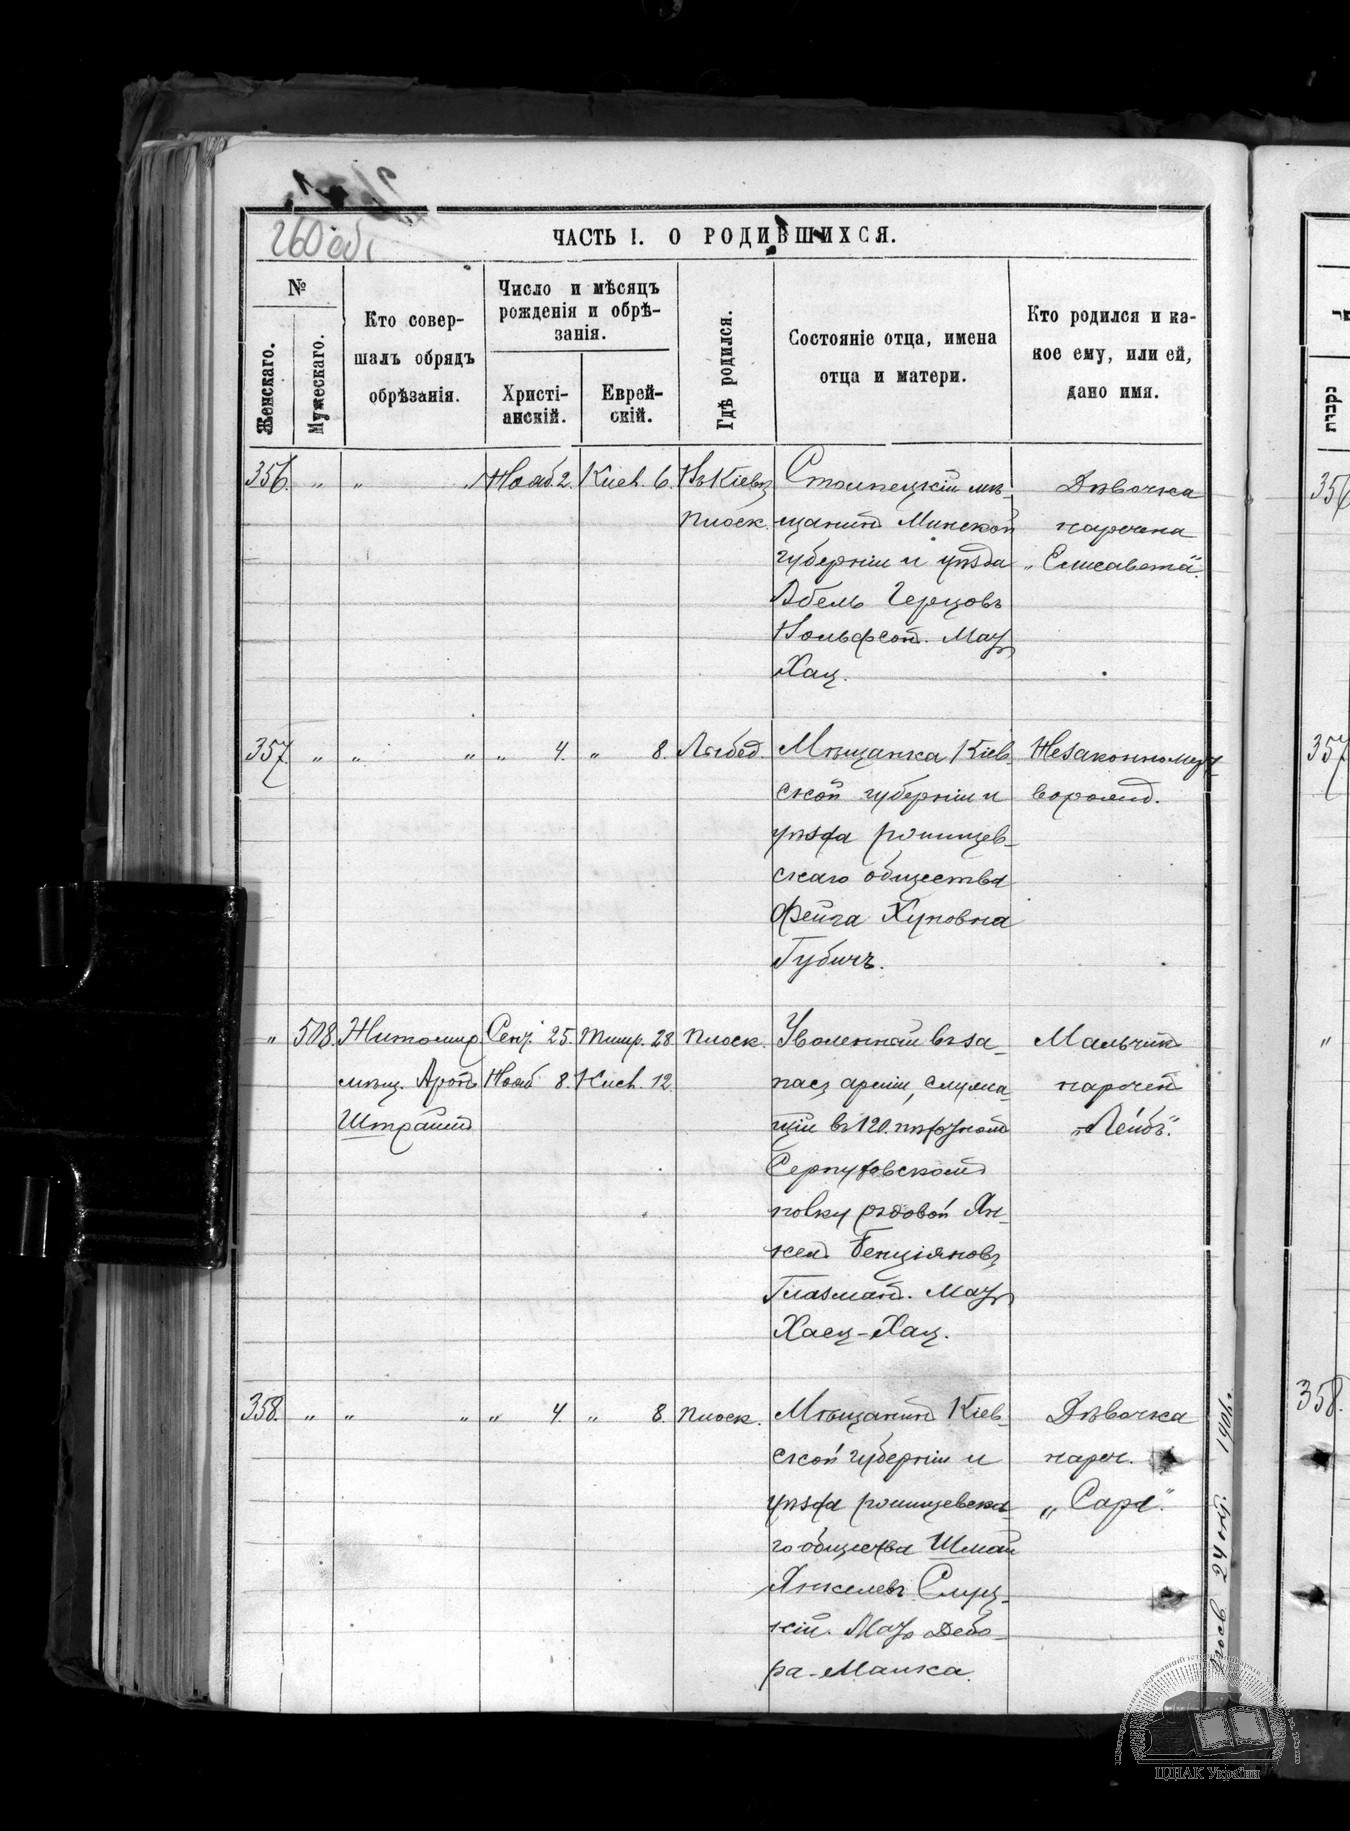 260 об.
ЧАСТЬ I. О РОДИВШИХСЯ.
№
Женскаго.
Мужескаго.
Кто совер-
шалъ обрядъ
обрѣзанія.
Число и мѣсяцъ
рожденія и обрѣ-
занія.
Христі-
анскій.
Еврей-
скій.
Гдѣ родился.
Состояніе отца, имена
отца и матери.
Кто родился и ка-
кое ему, или ей,
дано имя.
356. " " " Нояб. 2. Кисл. 6. Въ Кіевѣ
Плоск.
Столпецкій мѣ-
щанинъ Минской
губерніи и уѣзда
Абель Герцовъ
Вольфсонъ. Мать
Хая.
Дѣвочка
наречена
„Елисавета“.
357. " " " " 4. " 8. Лыбед.
Мѣщанка Кіев-
ской губерніи и
уѣзда
скаго общества
Фейга
Губичъ.
Незаконно мерт-
ворожд.
" 508. Житомир.
мѣщ. Аронъ
Штраймъ
Сент. 25. Тишр. 28
Нояб. 8. Кисл. 12.
Плоск.
Уволенный въ за-
пасъ арміи, служа-
щій въ 120. пѣхотномъ
Серпуховскомъ
полку рядовой Ян-
кель Бенціяновъ
Глазманъ. Мать
Хая.
Мальчикъ
нареченъ
„Лейбъ“.
358. " " " " 4. " 8. Плоск.
Мѣщанинъ Кіев-
ской губерніи и
уѣзда
го общества Шмай
Янкелевъ Слуц-
кій. Мать Дебо-
ра-Малка.
Дѣвочка
нареч.
„Сара“.
24 1906.
נקבות
356
357
"
358.
ЦДІАК України